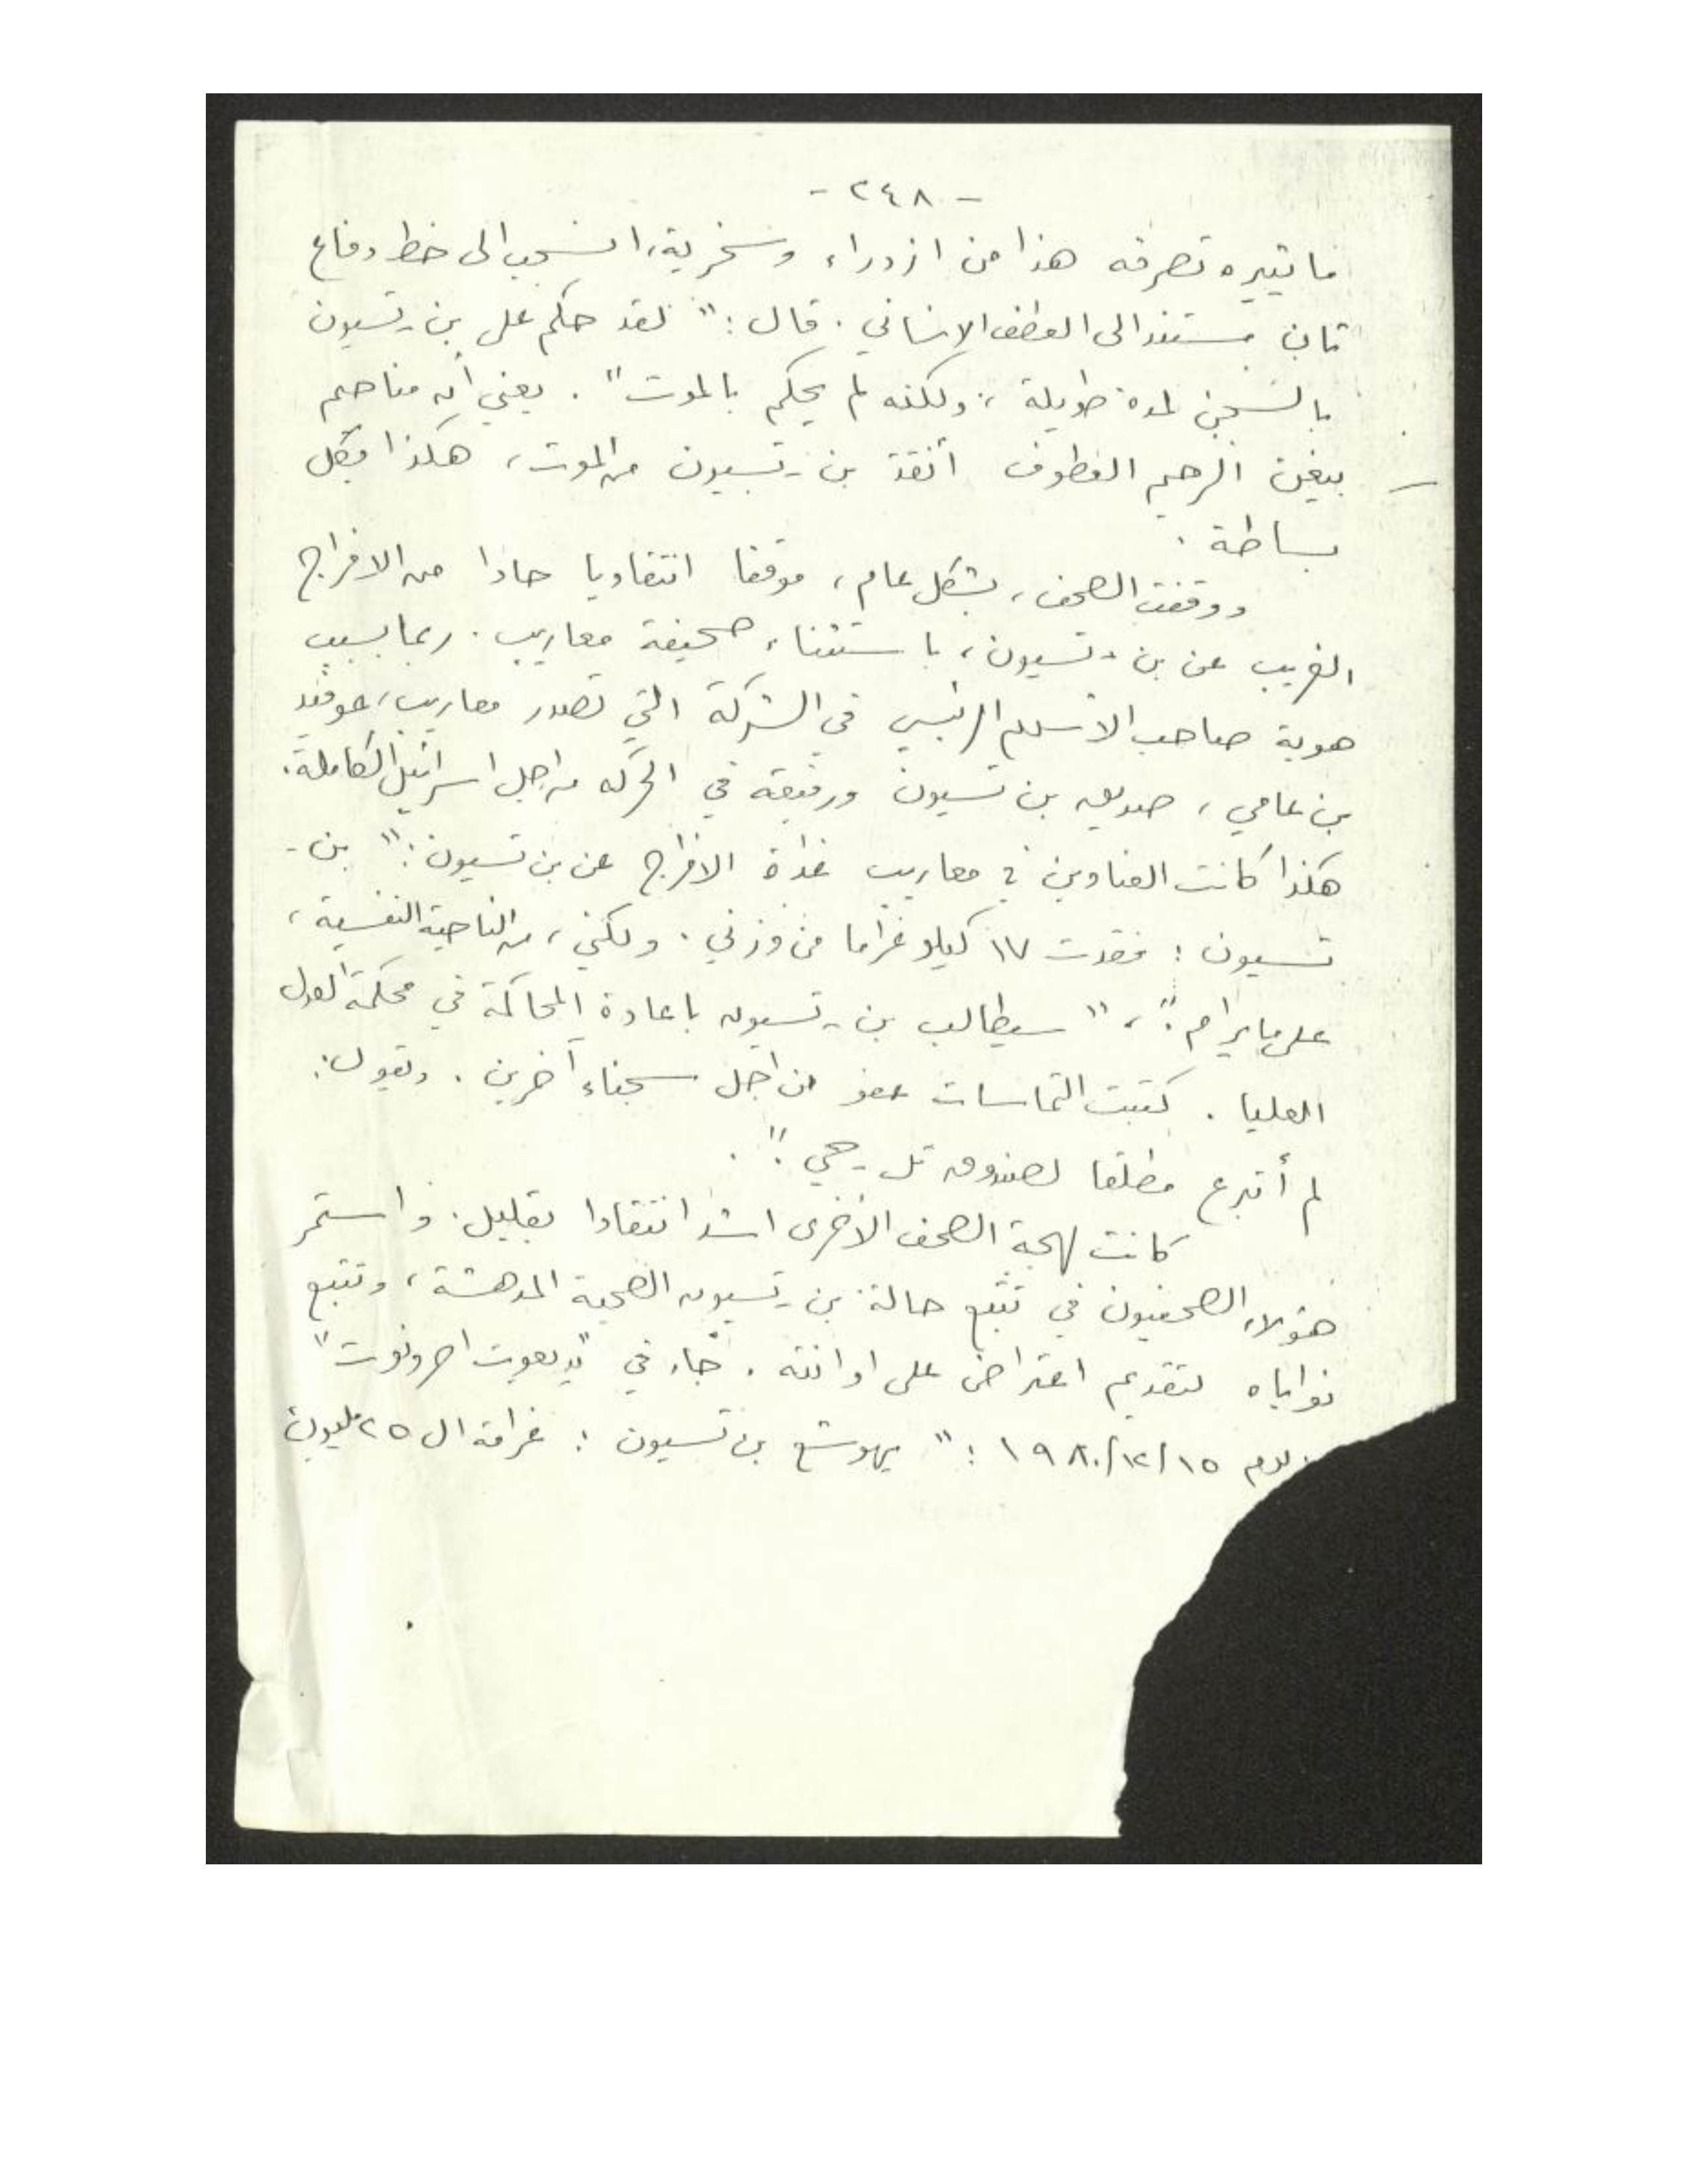 - ٢٤٨ -
ما تثيره تصرفه هذا من ازدراء وسخرية، انسحب الى خط دفاع
ثان مستندا الى العطف الانساني. قال: " لقد حكم على بن - تسيون
بالسجن لمدة طويلة، ولكنه لم يحكم بالموت". يعني أن مناحم
بيغن الرحيم العطوف أنقذ بن - تسيون من الموت، هكذا بكل
بساطة.
ووقفت الصحف، بشكل عام، موقفا انتقاديا حادا من الافراج
الغريب عن بن - تسيون، باستثناء صحيفة معاريب. ربما بسبب
هوية صاحب الاسهم الرئيسي في الشركة التي تصدر معاريب، عوفيد
بن عامي، صديق بن تسيون ورفيقه في الحركة من اجل اسرائيل الكاملة.
هكذا كانت العناوين في معاريب غداة الافراج عن بن تسيون: " بن -
تسيون: فقدت ١٧ كيلو غراما من وزني. ولكني، من الناحية النفسية،
على ما يرام"، " سيطالب بن - تسيون باعادة المحاكمة في محكمة العدل
العليا. كتبت التماسات عفو من اجل سجناء آخرين. ويقول:
لم أتبرع مطلقا لصندوق تل - حي".
كانت لهجة الصحف الاخرى اشد انتقادا بقليل. واستمر
هؤلاء الصحفيون في تتبع حالة بن - تسيون الصحية المدهشة، وتتبع
نواياه لتقديم اعتراض على ادانته. جاء في "يديعوت احرونوت"
يوم ١٩٨٠/١٢/١٥: " يهوشع بن تسيون: غرامة ال ٢٥ مليون